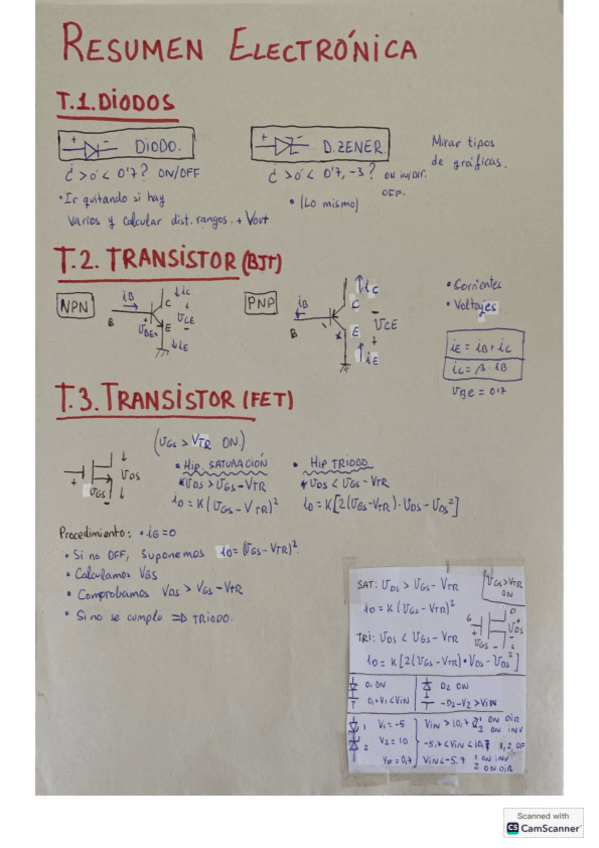 RESUMEN ELECTRÓNICA
T.1. DIODOS
+ DIODO.
¿ > ó < 0'7? ON/OFF
• Ir quitando si hay
varios y calcular dist. rangos. + Vout
+ D. ZENER.
¿ > ó < 0'7, -3? ON in/dir.
OFF.
• (Lo mismo)
Mirar tipos
de gráficas.
T.2. TRANSISTOR (BJT)
NPN
B iB iC C VCE VBE E iE
PNP
B iB iC C VCE E iE
• Corrientes
• Voltajes
iE = iB + iC
iC = β · iB
VBE = 0'7
T.3. TRANSISTOR (FET)
(VGS > VTR ON.)
VDS
VGS
• HIP. SATURACIÓN
VDS > VGS - VTR
iD = K (VGS - VTR)²
• HIP TRIODO
VDS < VGS - VTR
iD = K [2(VGS - VTR) · VDS - VDS²]
Procedimiento: • iG = 0
• Si no OFF, suponemos iD = (VGS - VTR)².
• Calculamos VGS
• Comprobamos VDS > VGS - VTR
• Si no se cumple => TRIODO.
SAT: VDS > VGS - VTR
iD = K (VGS - VTR)²
VGS > VTR
ON
TRI: VDS < VGS - VTR
iD = K [2(VGS - VTR) • VDS - VDS²]
G D VDS VGS
D1 ON
0,7 + V1 < VIN
D2 ON
-D2 - V2 > VIN
1
2
V1 = -5
V2 = 10
Vγ = 0,7
VIN > 10,7 1 ON DIR
2 ON INV
-5,7 < VIN < 10,7 1, 2, OF
VIN < -5,7 1 ON INV
2 ON DIR
Scanned with
CS CamScanner